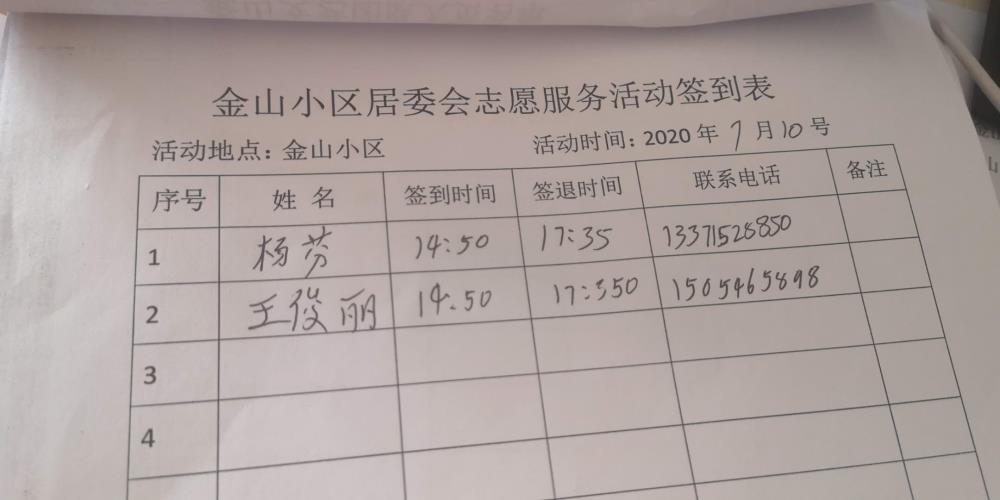 金山小区居委会志愿服务活动签到表
活动地点：金山小区 活动时间：2020 年 7 月 10 号
序号 姓 名 签到时间 签退时间 联系电话 备注
1 杨芬 14:50 17:35 13371528850
2 王俊丽 14:50 17:350 1505465898
3
4